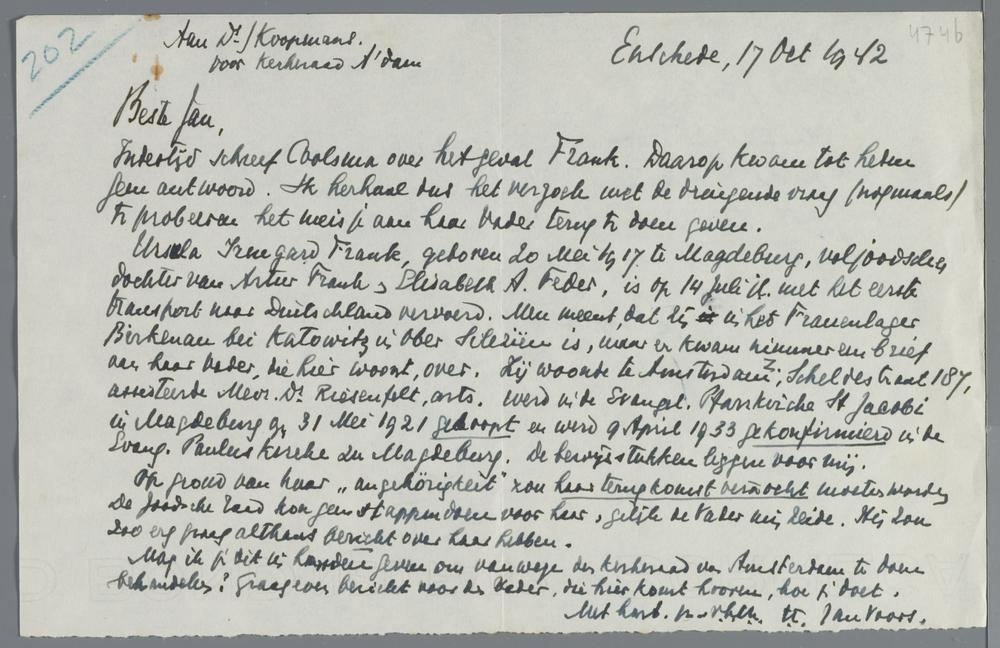 202
4746
Aan Ds. J Koopmans.
voor Kerkeraad A'dam
Enschede, 17 Oct 1942
Beste Jan,
Indertijd schreef Wolsma over het geval Frank. Daarop kwam tot heden
geen antwoord. Ik herhaal dus het verzoek met de dringende vraag (nogmaals)
te probeeren het meisje aan haar Vader terug te doen geven.
Ursula Irmgard Frank, geboren 20 Mei 1917 te Magdeburg, voljoodsche
dochter van Artur Frank & Elisabeth A. Feder, is op 14 Juli jl. met het eerste
transport naar Duitschland vervoerd. Men meent, dat zij in het Frauenlager
Birkenau bei Katowitz in Ober Silezien is, maar er kwam nimmer een brief
aan haar Vader, die hier woont, over. Zij woonde te Amsterdam Z, Scheldestraat 187,
assisteerde Mevr. Dr. Riesenfelt, arts. werd in de Evangel. Pfarrkirche St Jacobi
in Magdeburg op 31 Mei 1921 gedoopt en werd 9 April 1933 gekonfirmeerd in de
Evang. Paulus Kirche zu Magdeburg. De bewijsstukken liggen voor mij.
Op grond van haar „angehörigkeit" zou haar terugkomst verzocht moeten worden
De Joodsche Raad kon geen stappen doen voor haar, gelijk de Vader mij zeide. Hij zou
zoo erg graag althans bericht over haar hebben.
Mag ik je dit in handen geven om vanwege den kerkeraad van Amsterdam te doen
behandelen? Graag even bericht voor den Vader, die hier komt hooren, hoe je doet.
Met hart. gr. v.h.t.h. tt. Jan Voors.